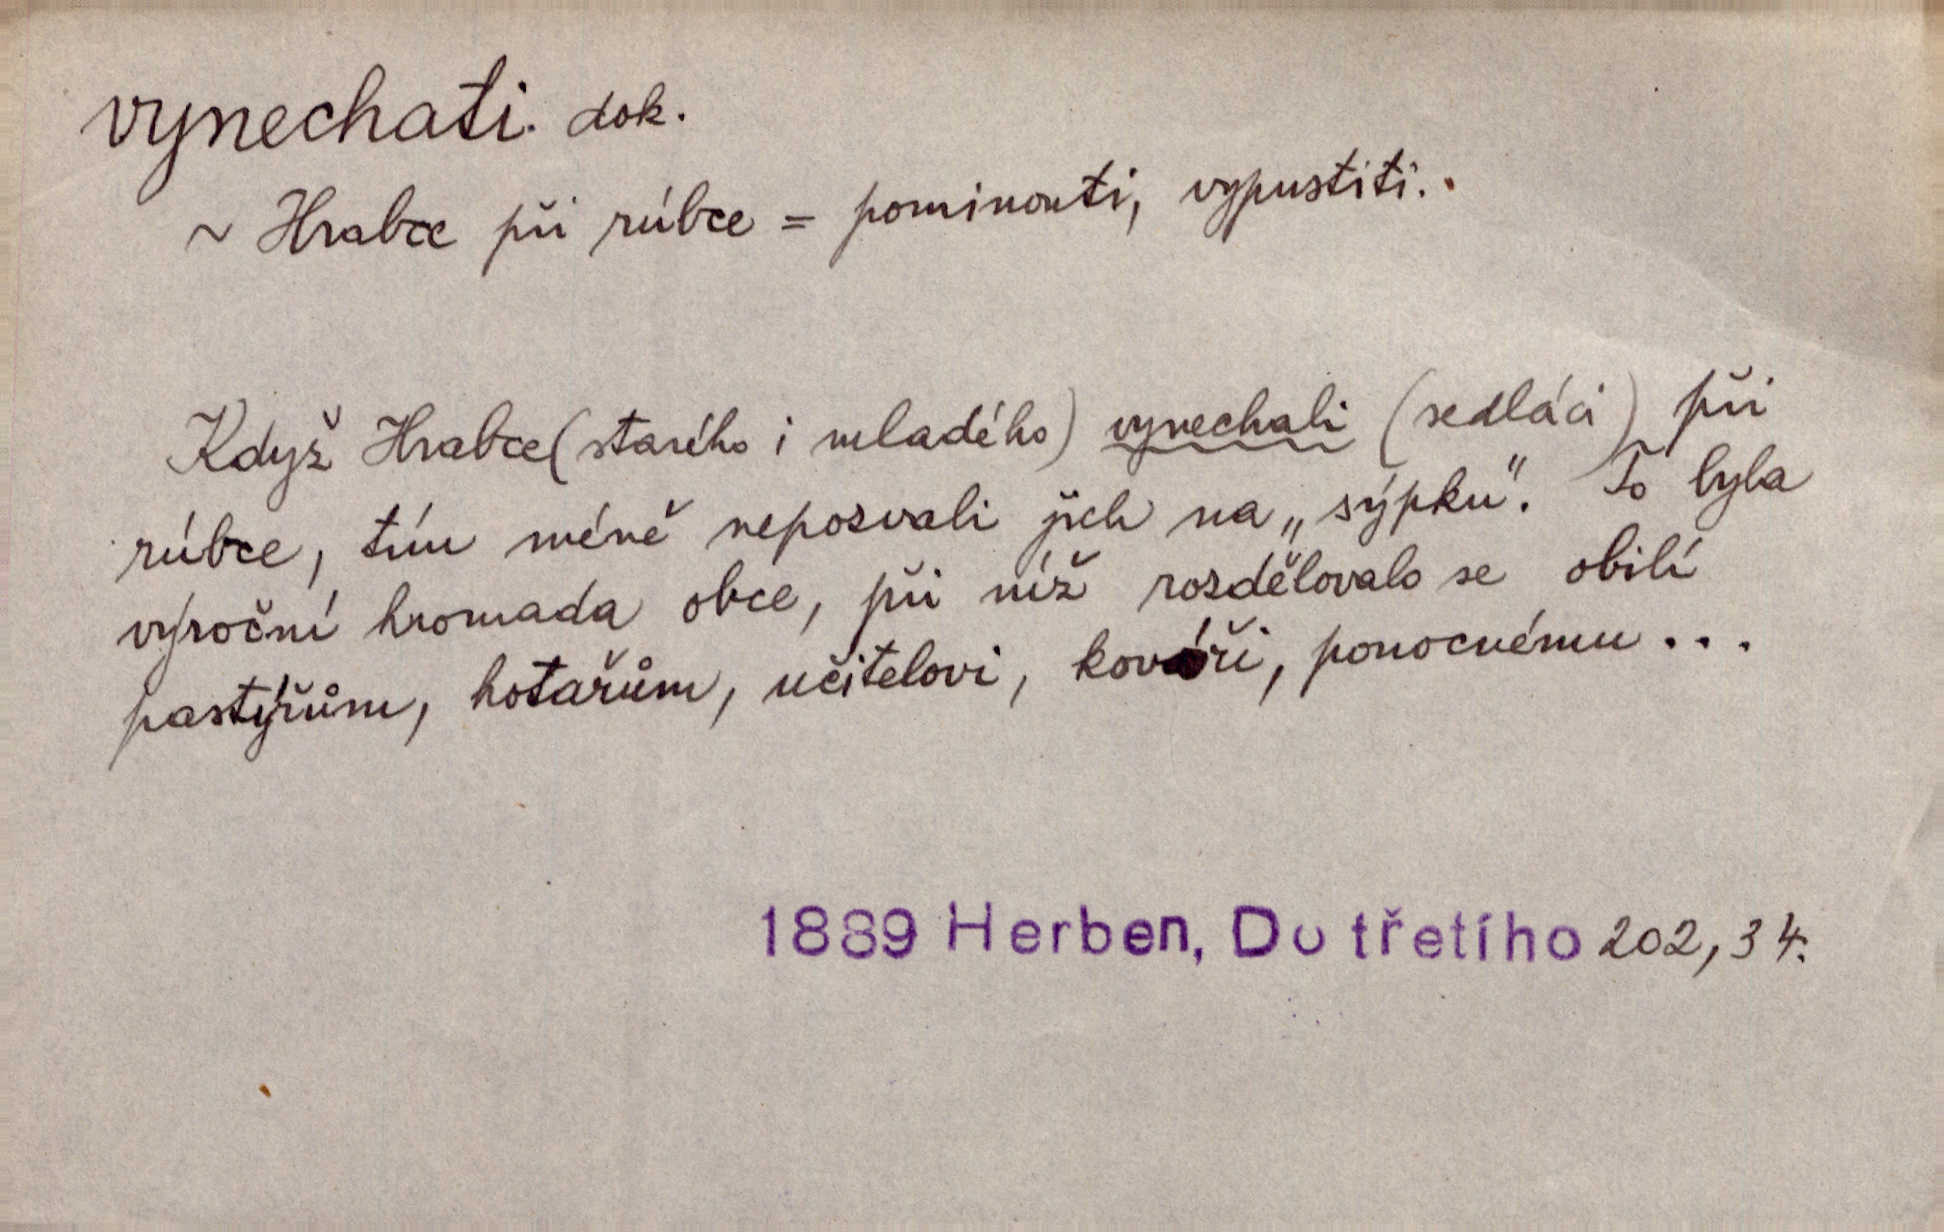 vynechati. dok.
~ Hrabce při rúbce = pominouti, vypustiti.
Když Hrabce (starého i mladého) vynechali (sedláci) při
rúbce, tím méně nepozvali jich na „sýpku“. To byla
výroční hromada obce, při níž rozdělovalo se obilí
pastýřům, hotařům, učitelovi, kováři, ponocnému...
1889 Herben, Do třetího 202, 34.